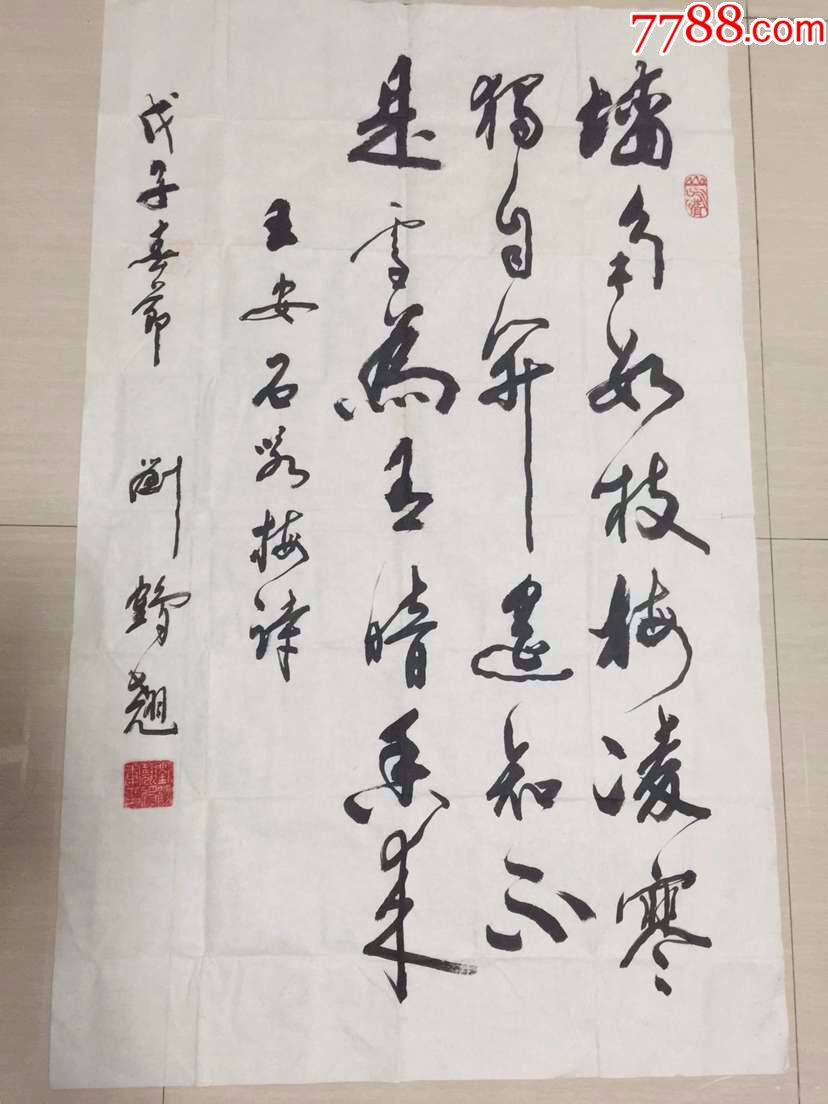 7788.com
墙角数枝梅凌寒
獨自开遥知不
是雪為有暗香来
王安石咏梅诗
戊子春节 劉鶴翘